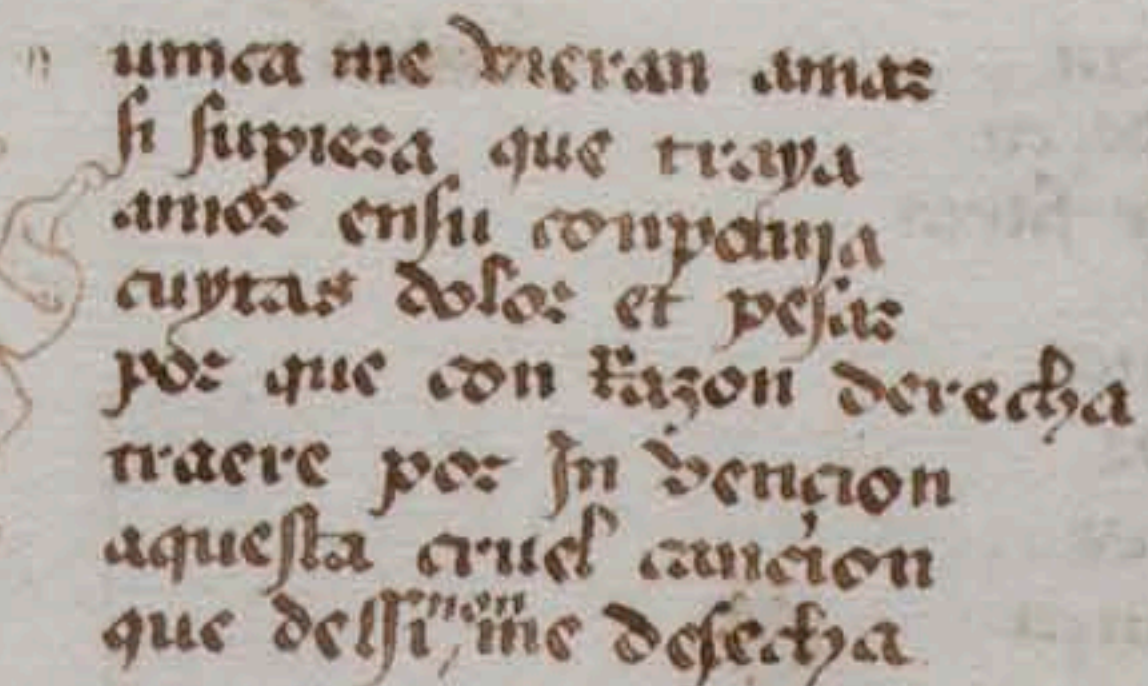 n unca me vieran amar
si supiera que traya
amor ensu conpania
cuytas dolor et pesar
por que con Razon derecha
traere por In vençion
aquesta cruel cançion
que delsi non me desecha